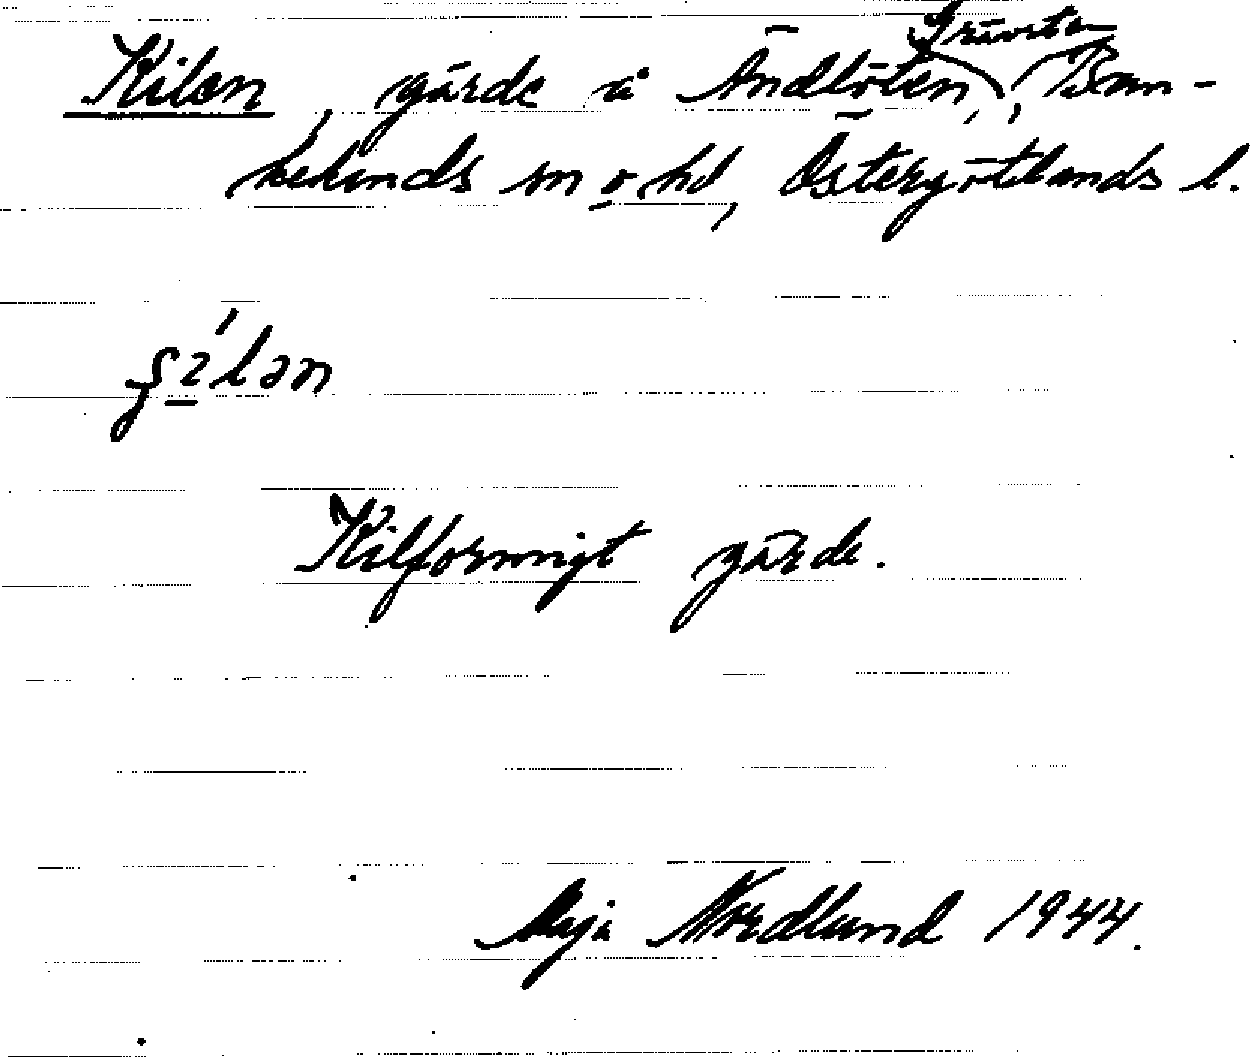 Kilen, gärde å Ändlöten, Grävsten, Ban-
kekinds sn o hd, Östergötlands l.
ʃi̱ ́lən
Kilformigt gärde.
Maja Nordlund 1944.